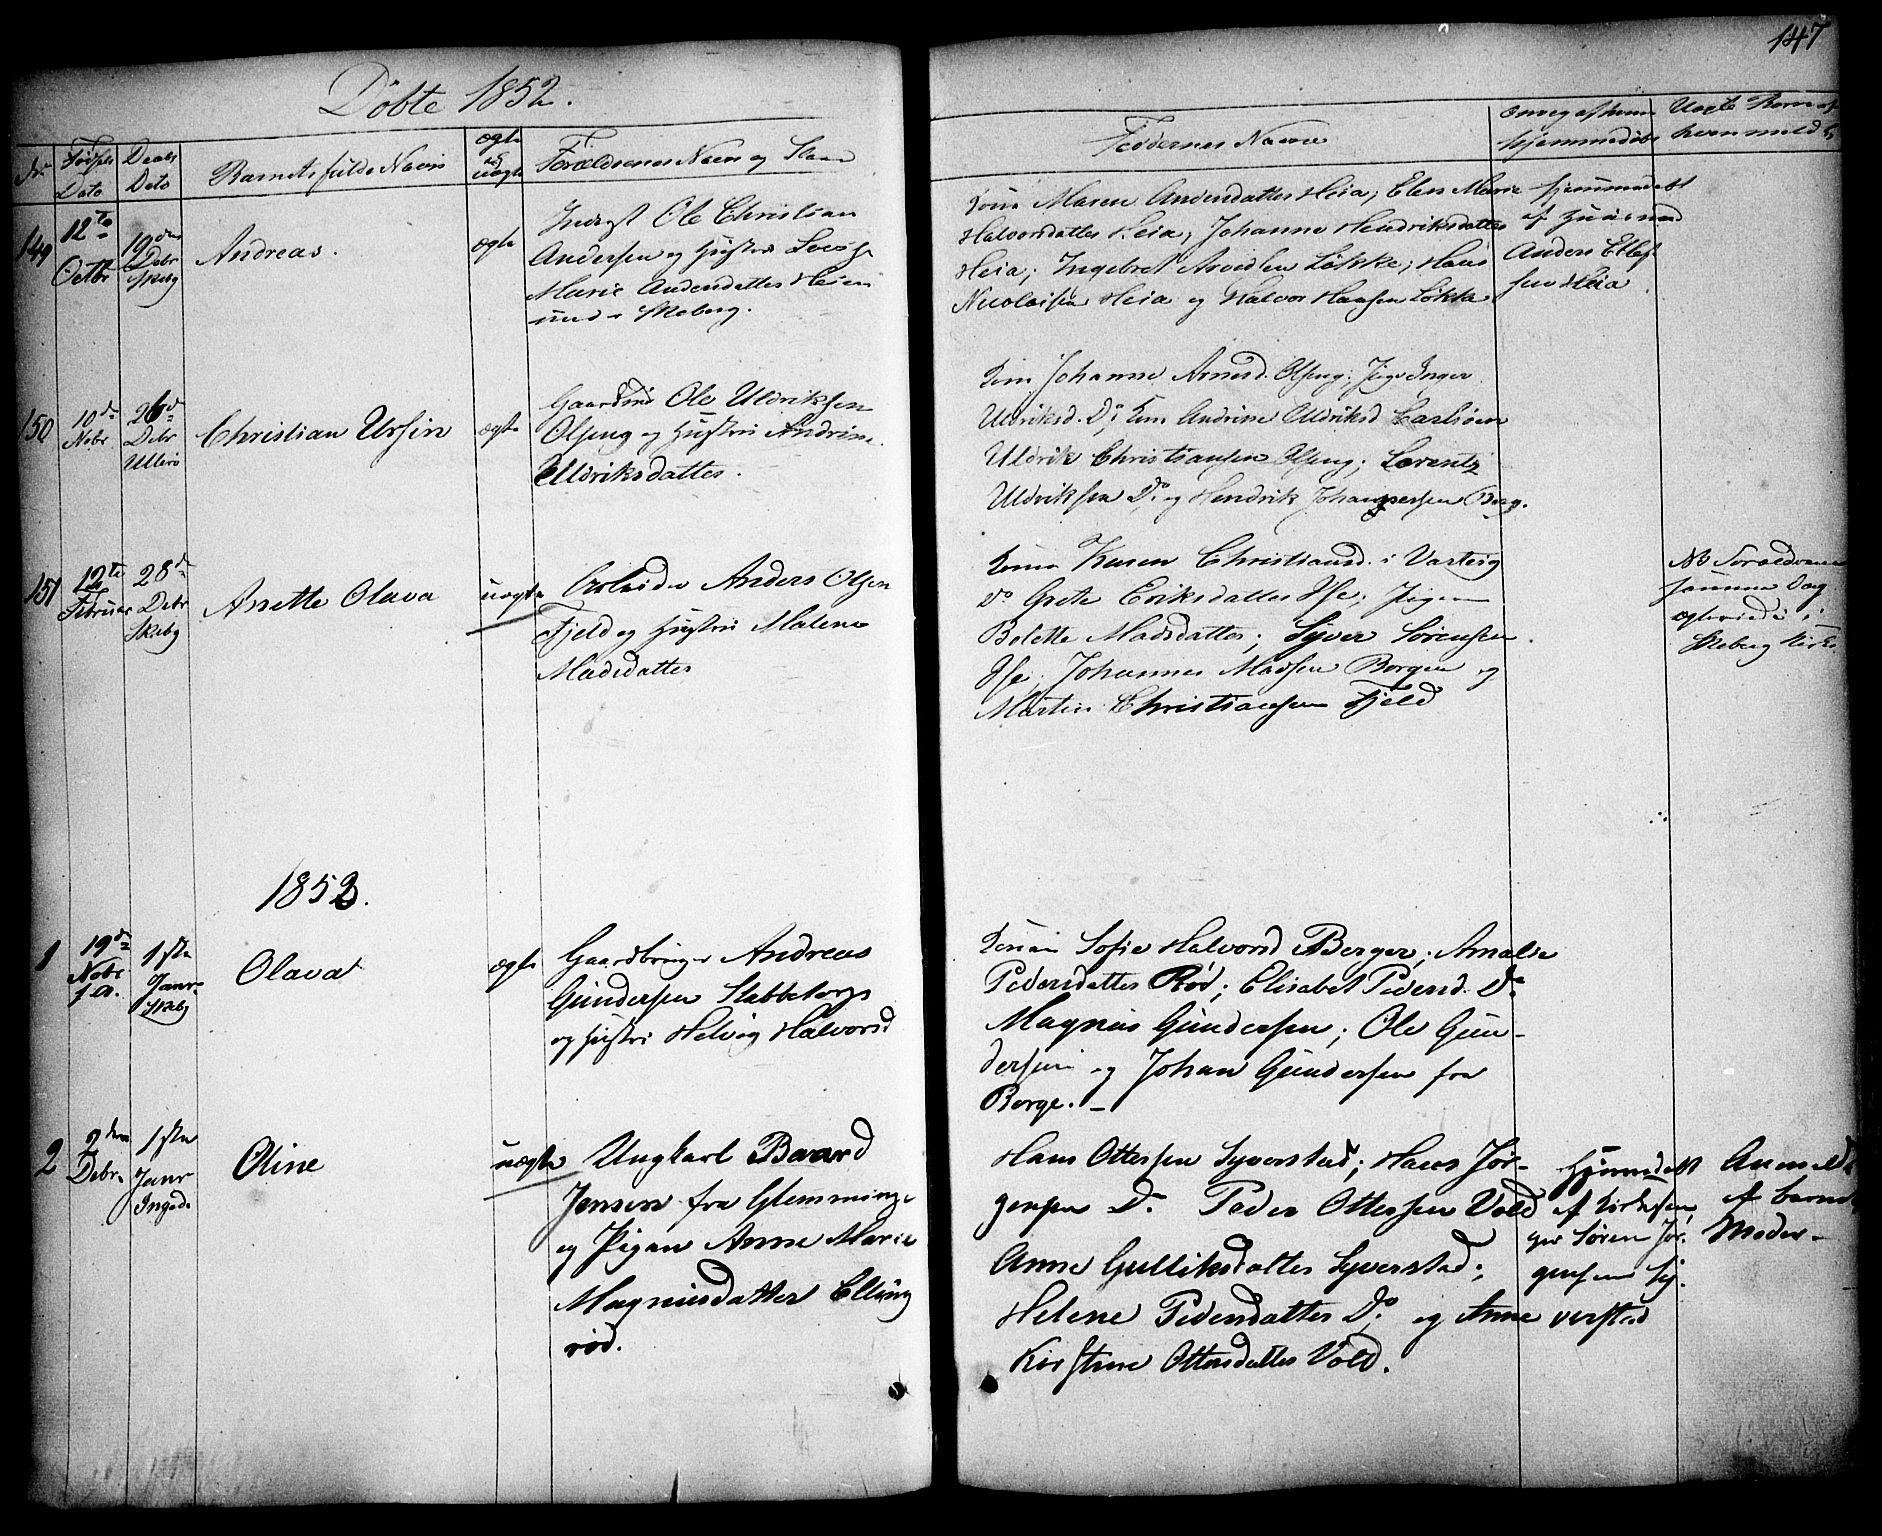 147
Döbte 1852.
No
Fødsels Dato
Daabs Dato
Barnets fulde Navn
ægte og uægte
Forældrenes Navn og Stand
Faddernes Navne
hjemmedøbt
Uægte Børn
149
12te Octbr
19de Debr Skebg
Andreas.
ægte
Inderst Ole Christian
Andersen og Hustru
Marie Andersdatter Heia
Skeberg.
Kone Maren Andersdatter Heia; Elen Marie
Halvorsdatter Heia; Johanne Hendriksdatter
Heia; Ingebret Arvedsen Løkke; Hans
Nicolaisen Heia og Halvor Hansen Løkke
hjemmedøbt
af
Anders Ellef-
sen Heia
150
10de Nobr
26de Debr Ullerö
Christian Ursin
ægte
Gaardbr Ole Uldriksen
Olseng og Hustru Andrine
Uldriksdatter.
Kone Johanne Arnesd. Olseng; Pige Inger
Uldriksd. Do; Kone Andrine Uldriksd
Uldrik Christiansen Olseng; Lorentz
Uldriksen Do. og Hendrik Johannessen Berg.
151
12te Februar
28de Debr Skebg
Anette Olava
uægte
Arbeider Anders Olsen
Fjeld og Hustru Malene
Madsdatter
Kone Karen Christiansd. i Varteig
Do Grete Eriksdatter Hse; Pigen
Bolette Madsdatter; Syver Sørensen
Hse; Johannes Madsen Borgen og
Martin Christiansen Fjeld
NB Forældrene
samme Dag
ægteviede i
Skeberg Kirke
1853.
1
19de Nobr f. A.
1ste Janr Skebg
Olava
ægte
Gaardbruger Andreas
Gundersen Stabbetorp
og Hustru Helvig Halvorsd
Konen Sofie Halvorsd Berger; Amalie
Pedersdatter Rød; Elisabet Pedersd. Do
Magnus Gundersen; Ole Gun-
dersen og Johan Gundersen fra
Borge. –
2
2den Debr.
1ste Janr Ingedr
Oline
uægte
Ungkarl Baard
Jensen fra Glemminge
og Pigen Anne Marie
Magnusdatter Elling
rød.
Hans Ottersen Syverstad; Hans Jør-
gensen Do Peder Ottersen Vold
Anne Gulliksdatter Syverstad;
Helene Pedersdatter Do. og Anne
Kirstine Ottersdatter Vold.
Hjemedøbt
af Kirkesan
ger Søren Jør-
gensen Sy-
verstad
Anmeldt
af Barnets
Moder –